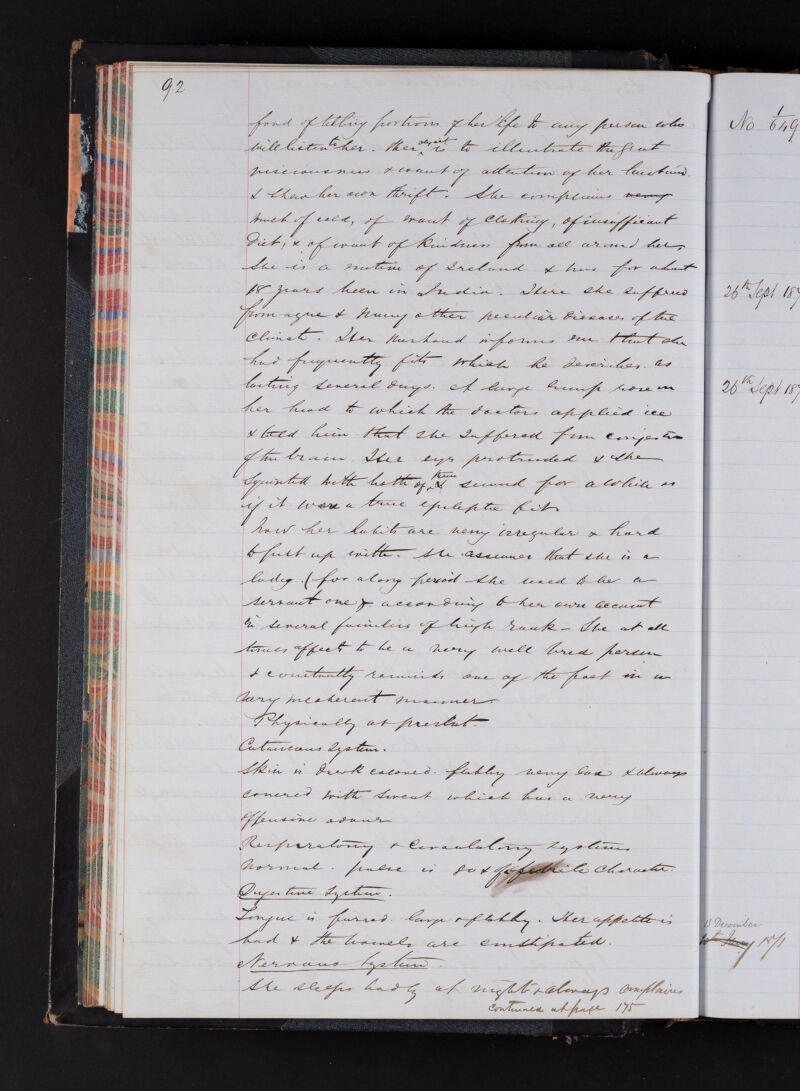 92
fond of telling portions of her life to any person who
will listen to her. Her object is to illustrate the great
viciousness & want of attention of her husband
& shew her own thrift. She complains very
much of cold, of want of clothing, of insufficient
diet, & of want of kindness from all around her,
She is a native of Ireland & has for about
18 years been in India. There she suffered
from ague & many other peculiar diseases of the
climate. Her husband informs me that she
had frequently fits which he describes as
lasting several days. A large lump rose on
her head to which the doctors applied ice
& told him that she suffered from congestion
of the brain. Her eyes protruded & she
squinted with both of them & seemed for a while as
if it were a true epileptic fit.
Now her habits are very irregular & hard
to put up with. She assumes that she is a
lady (for a long period she used to be a
servant one & according to her own account
in several families of high rank - She at all
times affects to be a very well bred person
& constantly reminds one of the past in a
very incoherent manner
Physically at present.
Cutaneous System.
Skin is dark colored. flabby very lax & always
covered with sweat which has a very
offensive odour
Respiratory & Circulatory systems
Normal. pulse is 80 & of febrile character.
Digestive System.
Tongue is furred. large & flabby. Her appetite is
bad & the bowels are constipated.
Nervous System.
She sleeps badly at night & always complains
Continued at page 175
No 1/649
26th Sept 187
26th Sept 187
13 December
1871